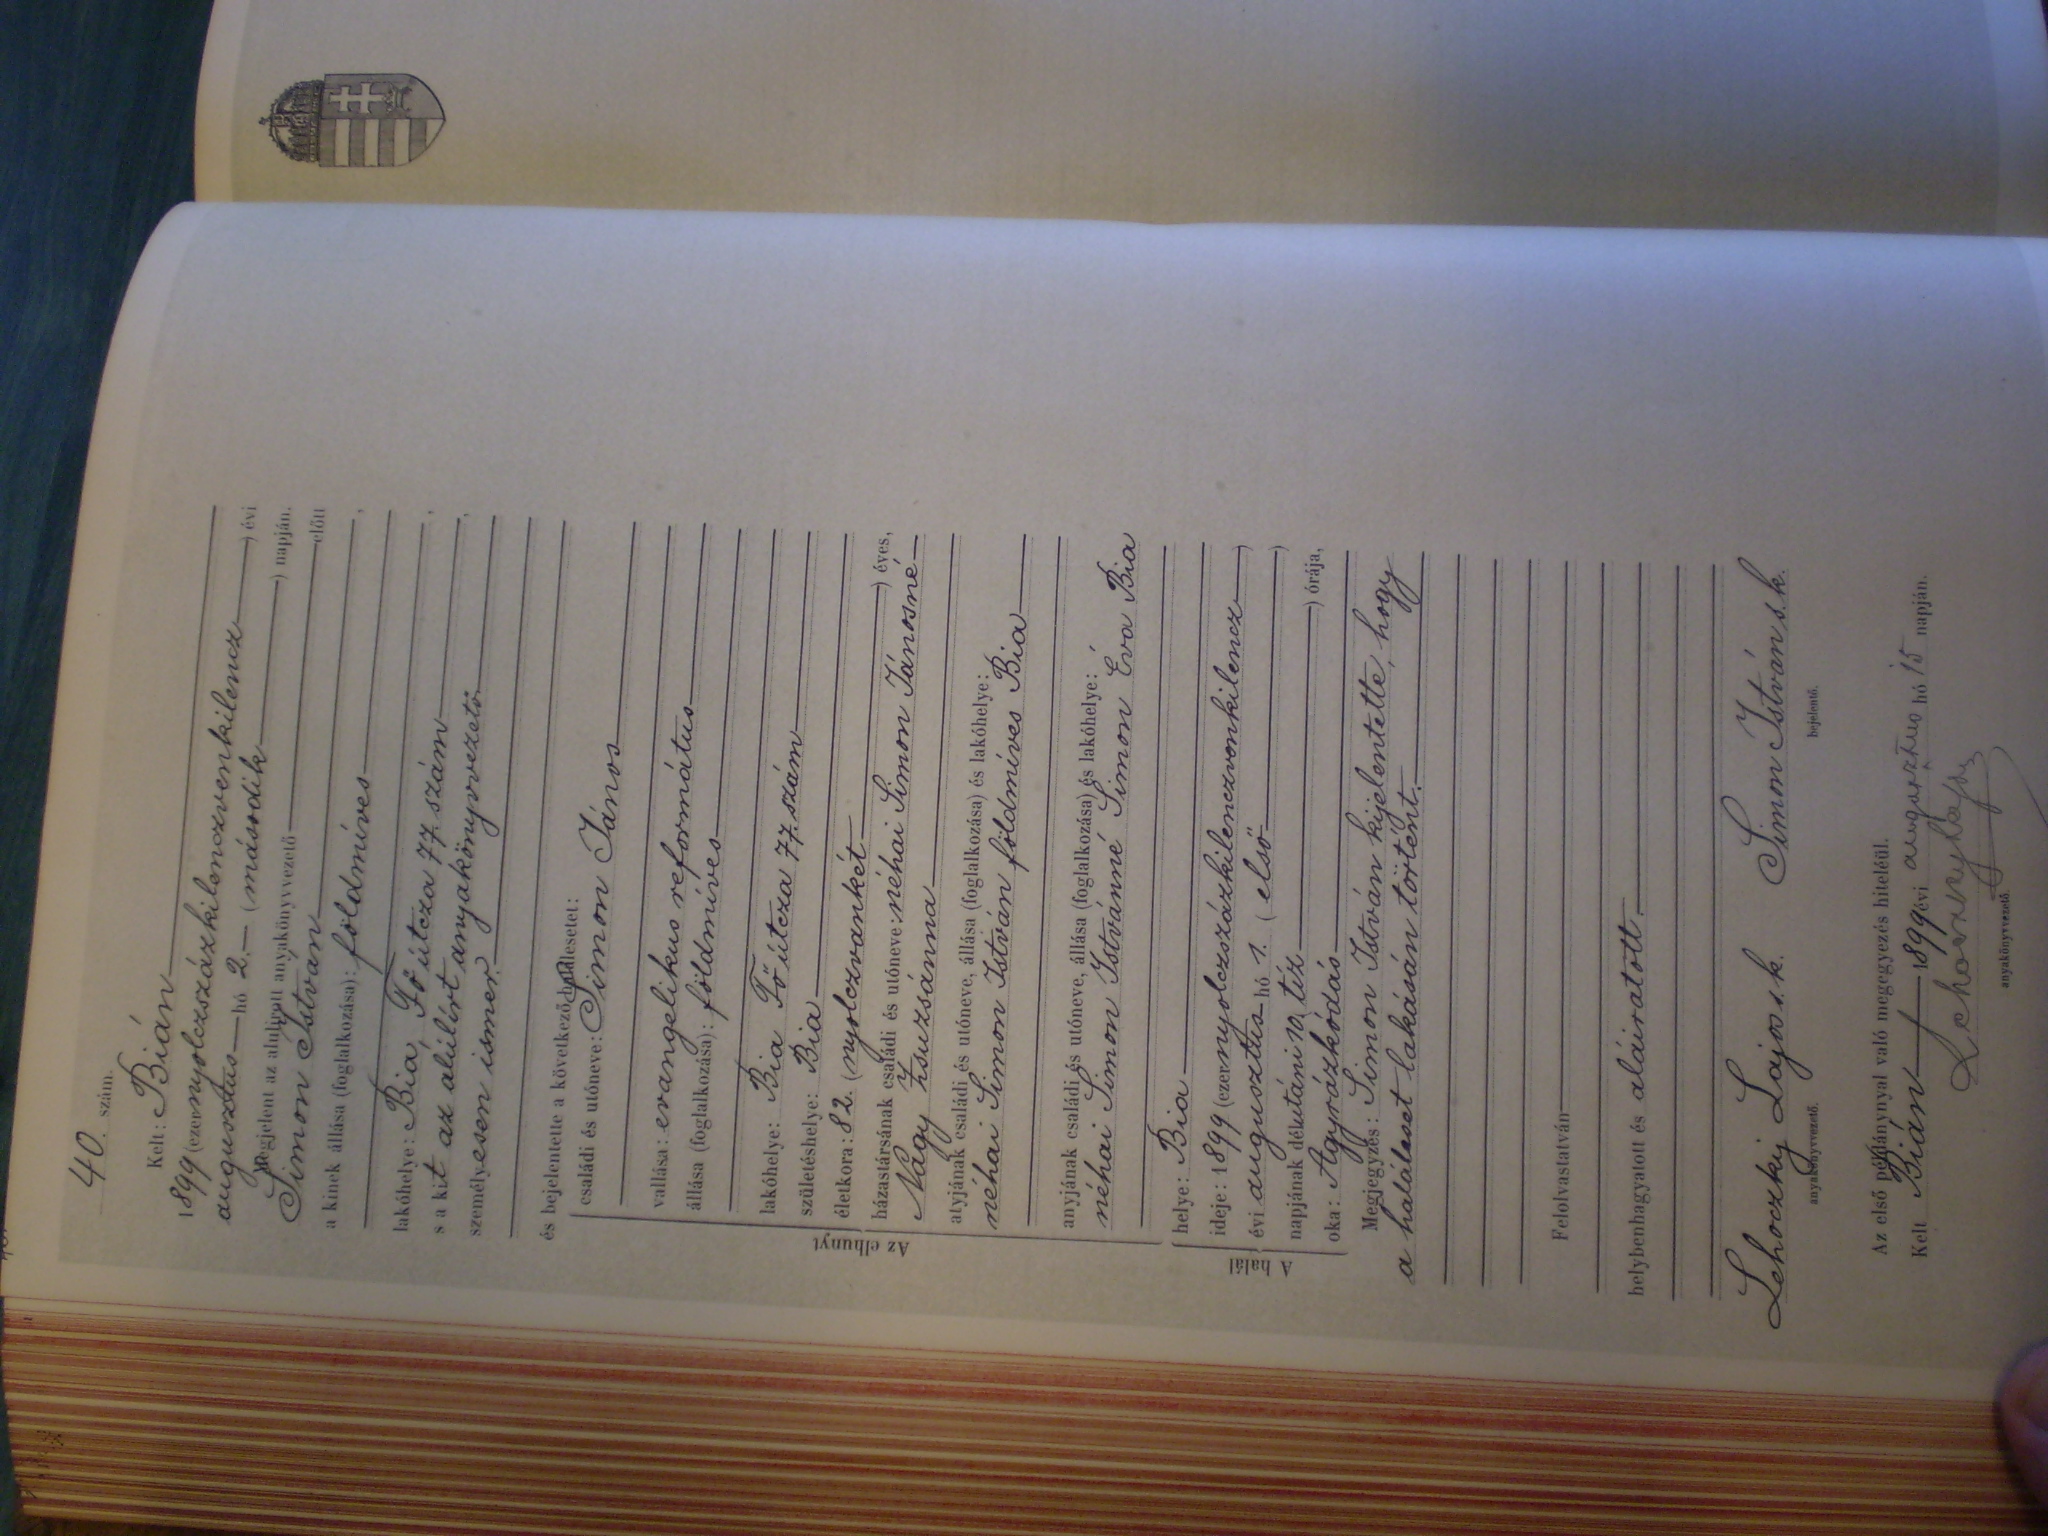 40. szám.
Kelt: Bián
1899 (ezernyolczszázkilenczvenkilencz) évi
augusztus hó 2. (második) napján.
Megjelent az alulirott anyakönyvvezető előtt
Simon István
a kinek állása (foglalkozása): földmíves,
lakóhelye: Bia, Fő útcza 77. szám,
s a kit az alúlírt anyakönyvvezető,
személyesen ismer.
és bejelentette a következő halálesetet:
Az elhunyt
családi és utóneve: Simon János
vallása: evangelikus református
állása (foglalkozása): földmíves
lakóhelye: Bia Fő útcza 77. szám
születéshelye: Bia
életkora: 82. (nyolczvankét) éves,
házastársának családi és utóneve: néhai Simon Jánosné
Nagy Zsuzsánna
atyjának családi és utóneve, állása (foglalkozása) és lakóhelye:
néhai Simon István földmíves Bia
anyjának családi és utóneve, állása (foglalkozása) és lakóhelye:
néhai Simon Istvánné Simon Éva Bia
A halál
helye: Bia
ideje: 1899 (ezernyolczszázkilenczvenkilencz)
évi augusztus hó 1. (első)
napjának délutáni 10 tíz) órája,
oka: Agyrázkódás
Megjegyzés: Simon István kijelentette, hogy
a haláleset lakásán történt.
Felolvastatván
helybenhagyatott és aláiratott.
Lehoczky Lajos s.k. Simon István s.k.
anyakönyvvezető. bejelentő.
Az első példánynyal való megegyezés hiteléül.
Kelt Bián 1899 évi augusztus hó 15 napján.
Lehoczky Lajos
anyakönyvvezető.